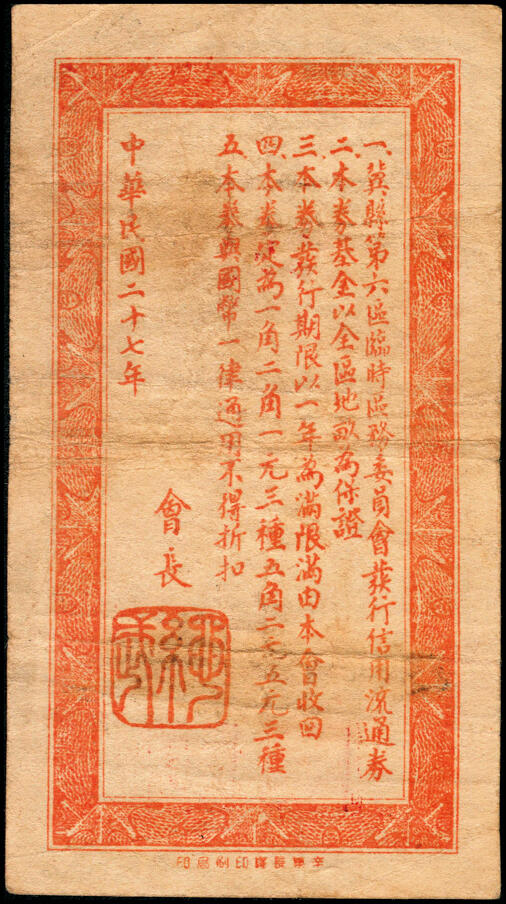 一、冀縣第六區臨時區務委員會發行信用流通券
二、本券基金以全區地畝為保證
三、本券發行期限以一年為滿限滿由本會收回
四、本券定為一角二角一元三種五角二元五元三種
五、本券與國幣一律通用不得折扣
會長
中華民國二十七年